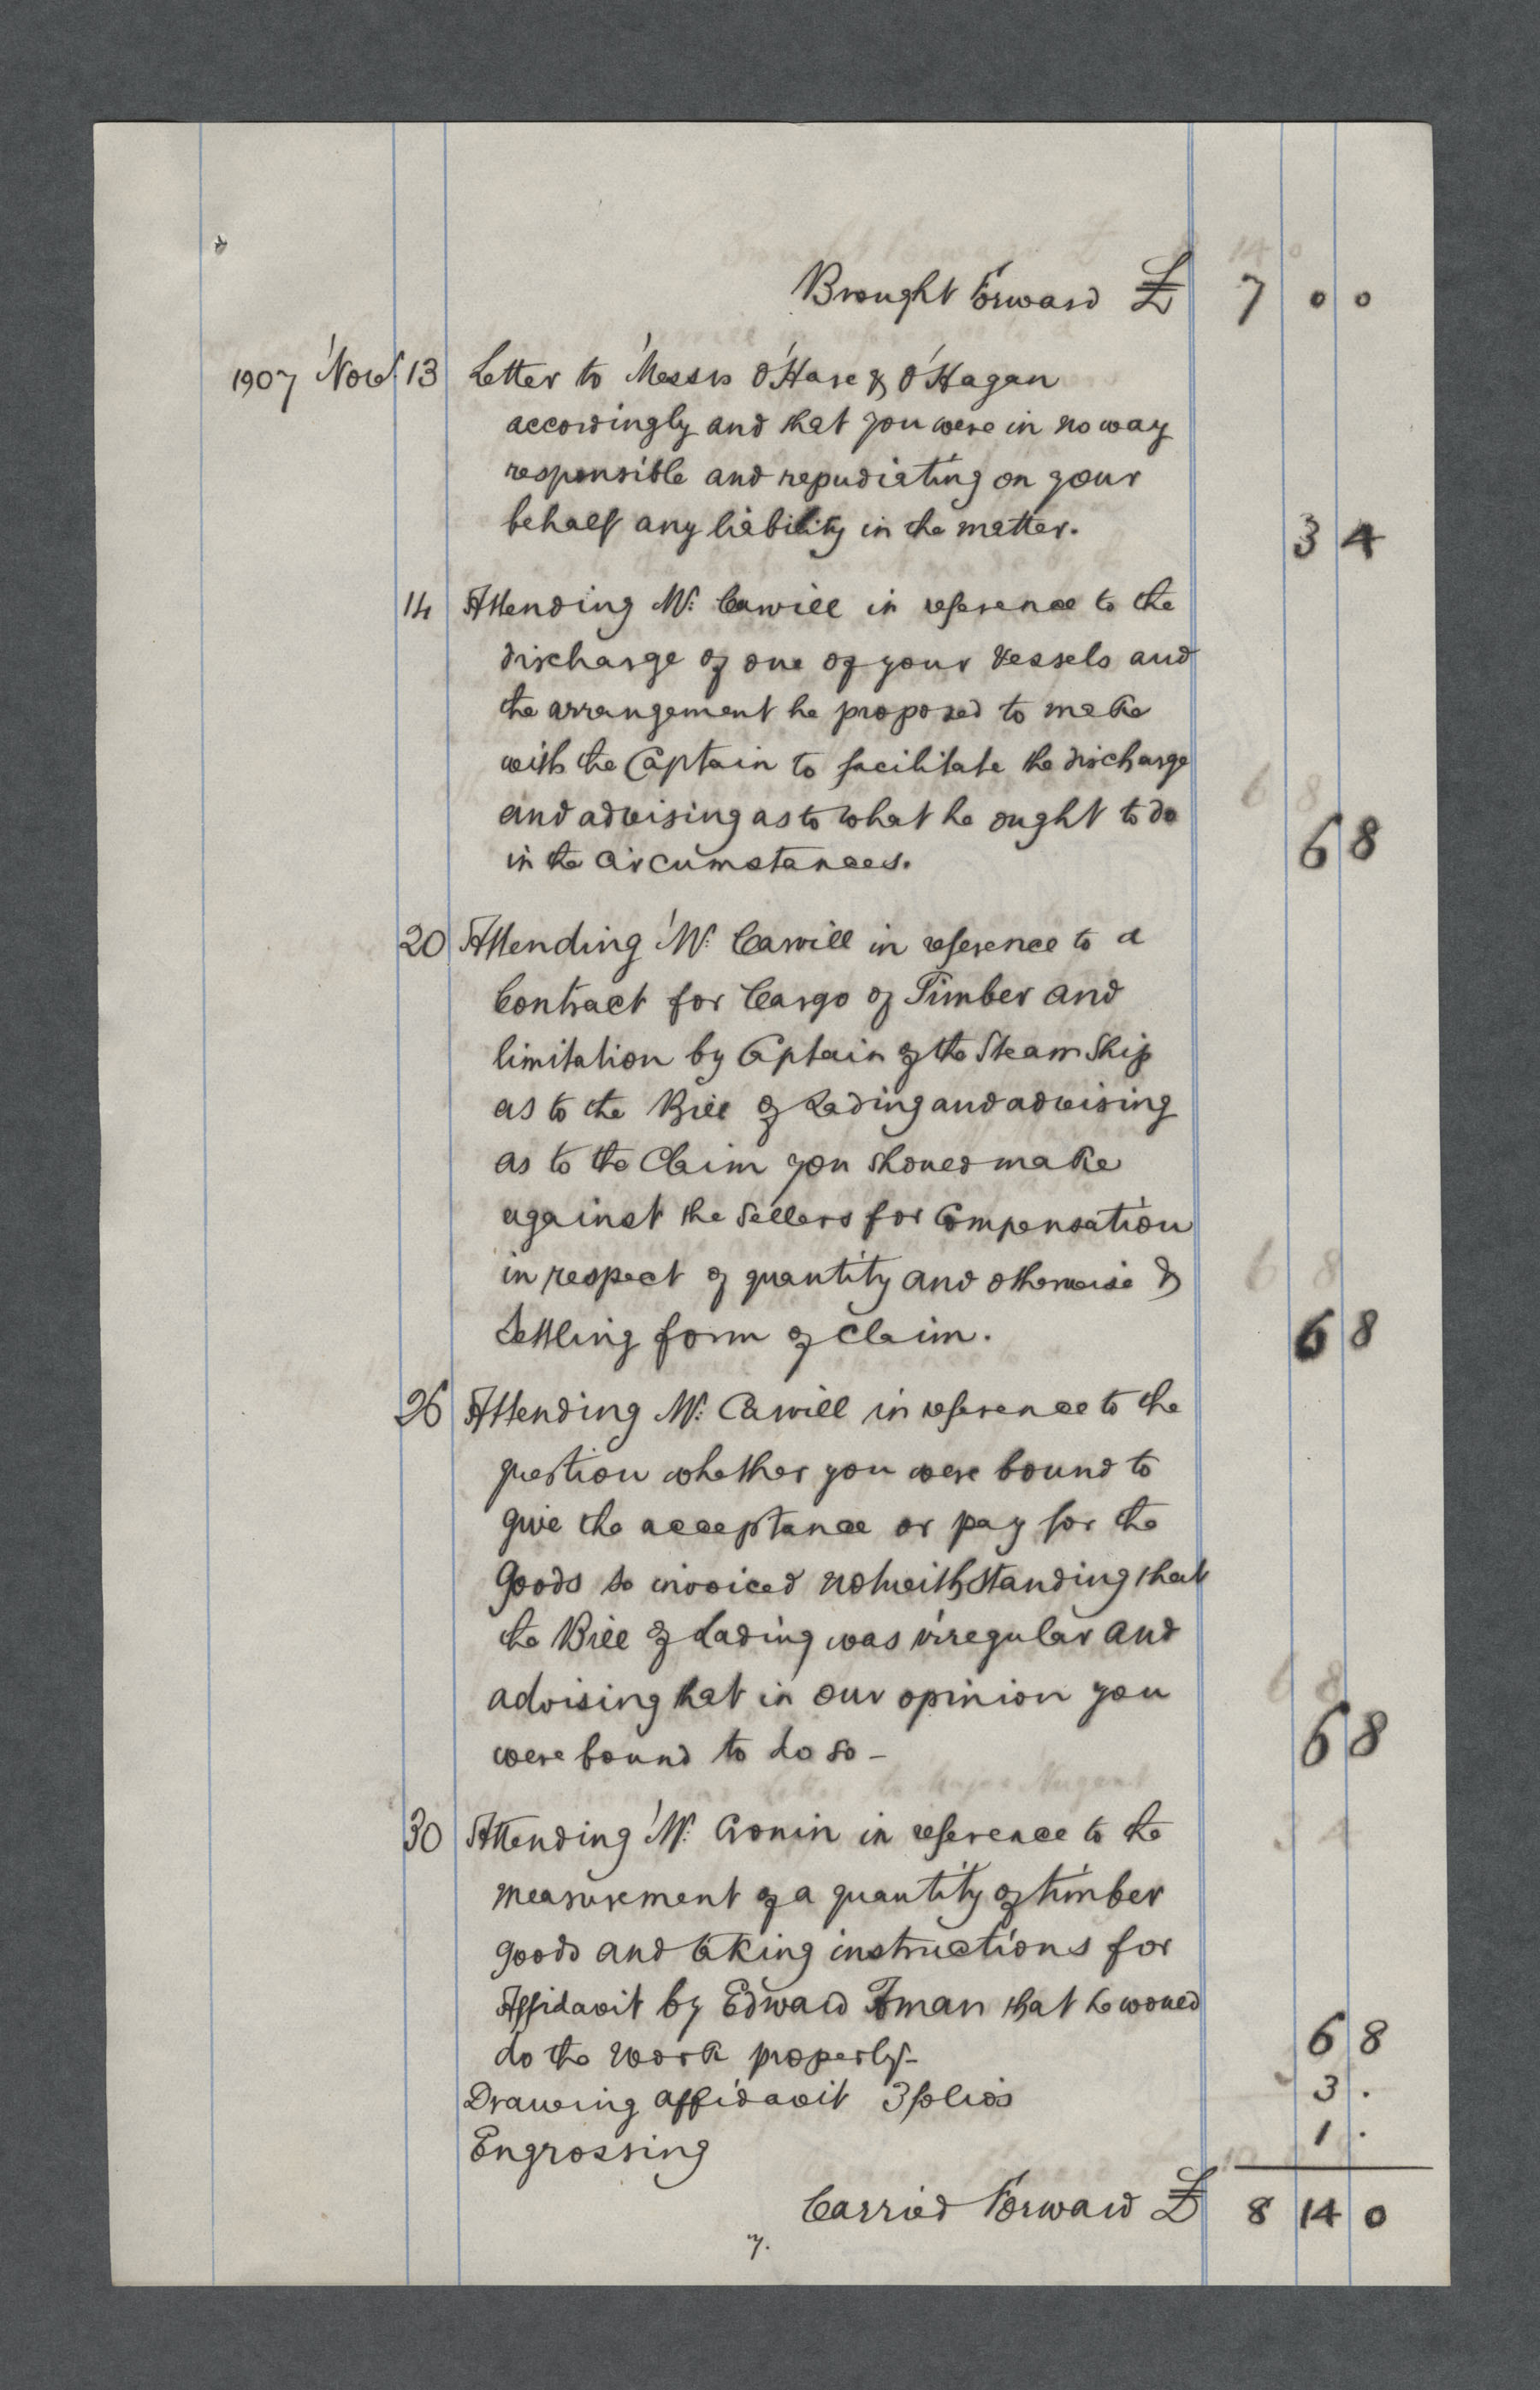 Brought Forward £ 7 0 0
1907 Nov. 13 Letter to Messrs O'Hare & O'Hagan
accordingly and that you were in no way
responsible and repudiating on your
behalf any liability in the matter. 3 4
14 Attending Mr. Cawill in reference to the
discharge of one of your vessels and
the arrangement he proposed to make
with the Captain to facilitate the discharge
and advising as to what he ought to do
in the circumstances. 6 8
20 Attending Mr. Carvill in reference to a
Contract for Cargo of Timber and
limitation by Captain of the Steam Ship
as to the Bill of Lading and advising
as to the Claim you should make
against the Sellers for Compensation
in respect of quantity and otherwise &
Settling form of Claim. 6 8
26 Attending Mr. Carvill in reference to the
question whether you were bound to
give the acceptance or pay for the
Goods so invoiced notwithstanding that
the Bill of Lading was irregular and
advising that in our opinion you
were bound to do so - 6 8
30 Attending Mr. Cronin in reference to the
measurement of a quantity of timber
goods and taking instructions for
Affidavit by Edward that he would
do the work properly- 6 8
Drawing affidavit 3 folios 3 .
Engrossing 1 .
Carried Forward £ 8 14 0
7.